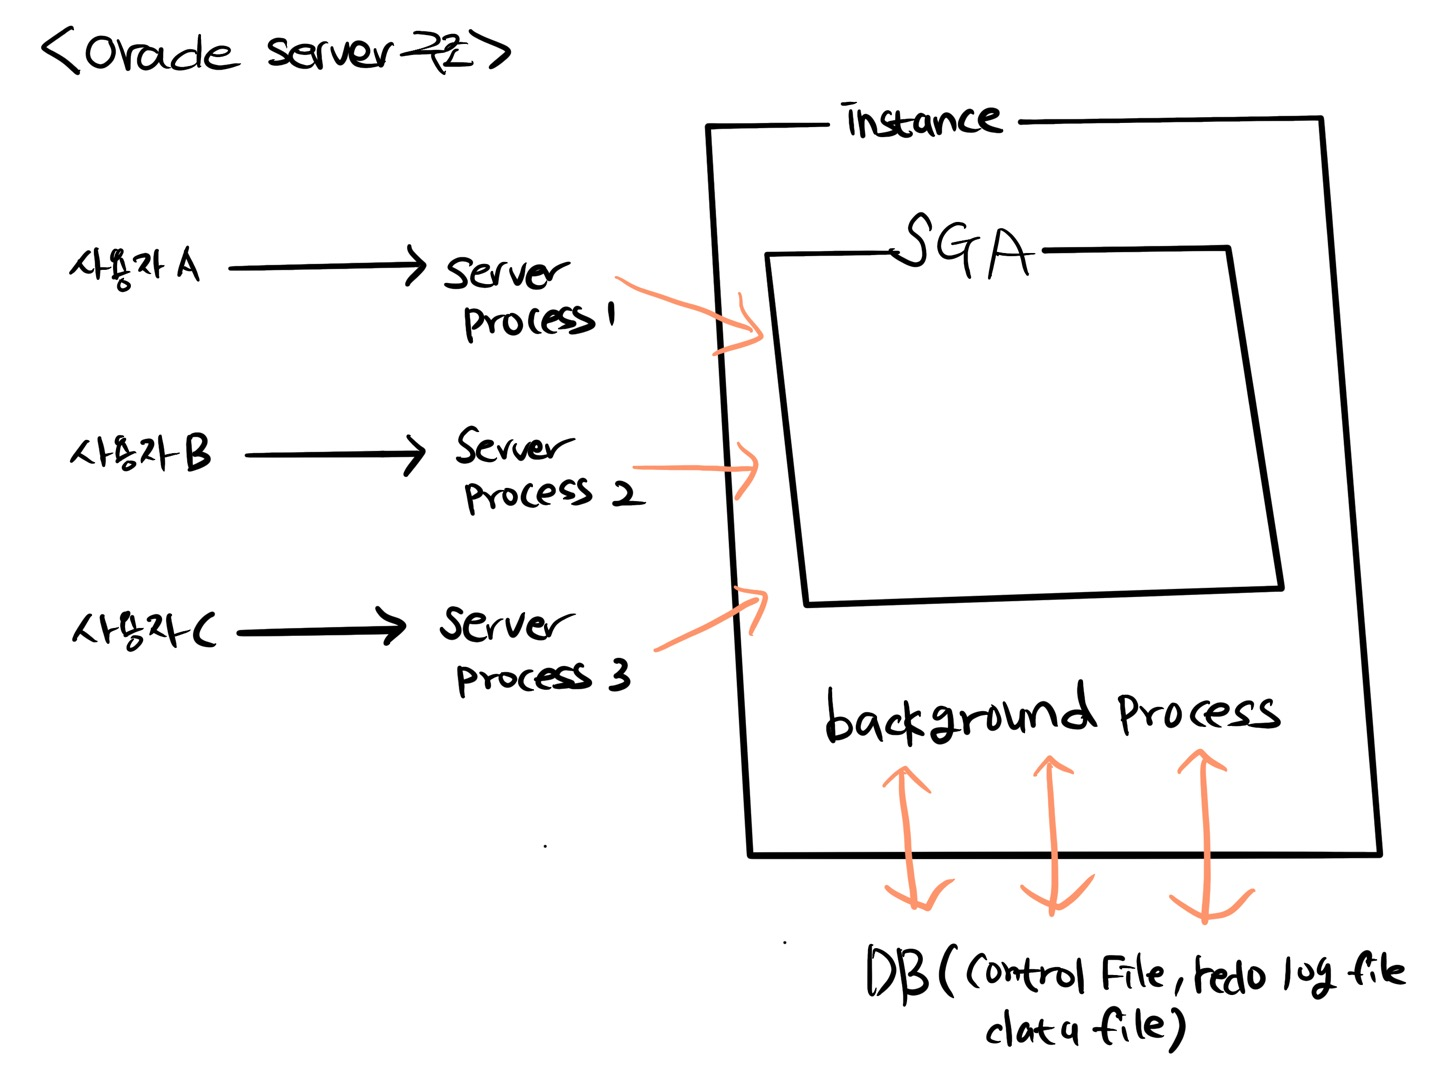 <Oracle server 구조>
instance
SGA
사용자 A
server
process 1
사용자 B
server
process 2
사용자 C
server
process 3
background process
DB (control file, redo log file
data file)